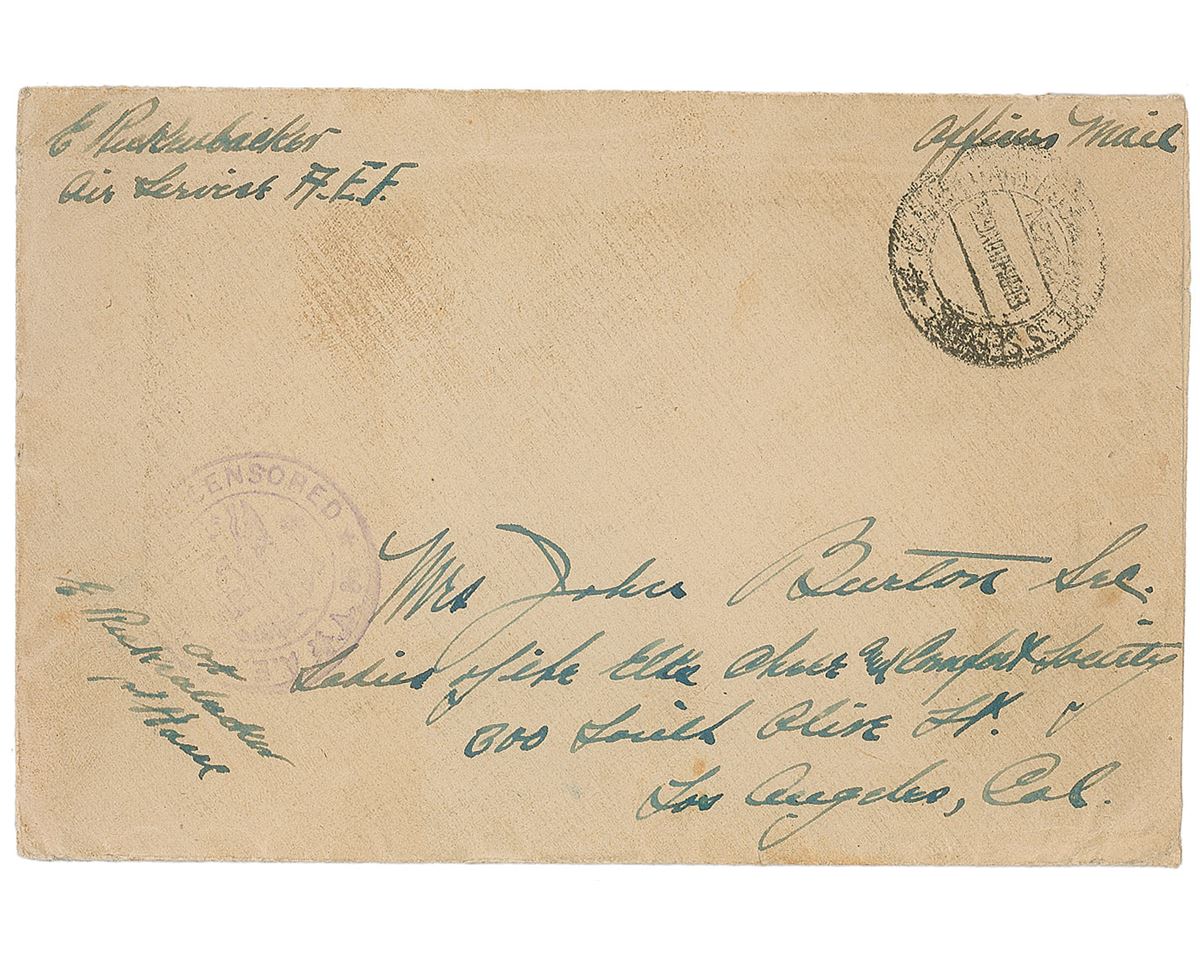 E Rickenbacker
Air Service A.E.F.
Officers Mail
CENSORED
A.E.F.
Mrs John Burton Sec.
Ladies of the Elks Cheer & Comfort Society
300 South Olive St.
Los Angeles, Cal.
E Rickenbacker
1st Lieut